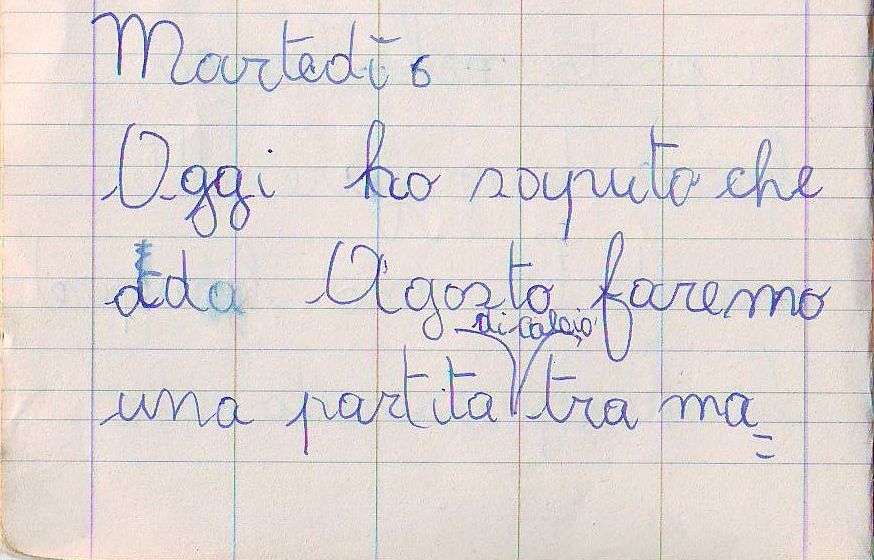 Martedì 6
Oggi ho saputo che
ad Agosto faremo
di calcio
una partita tra ma=